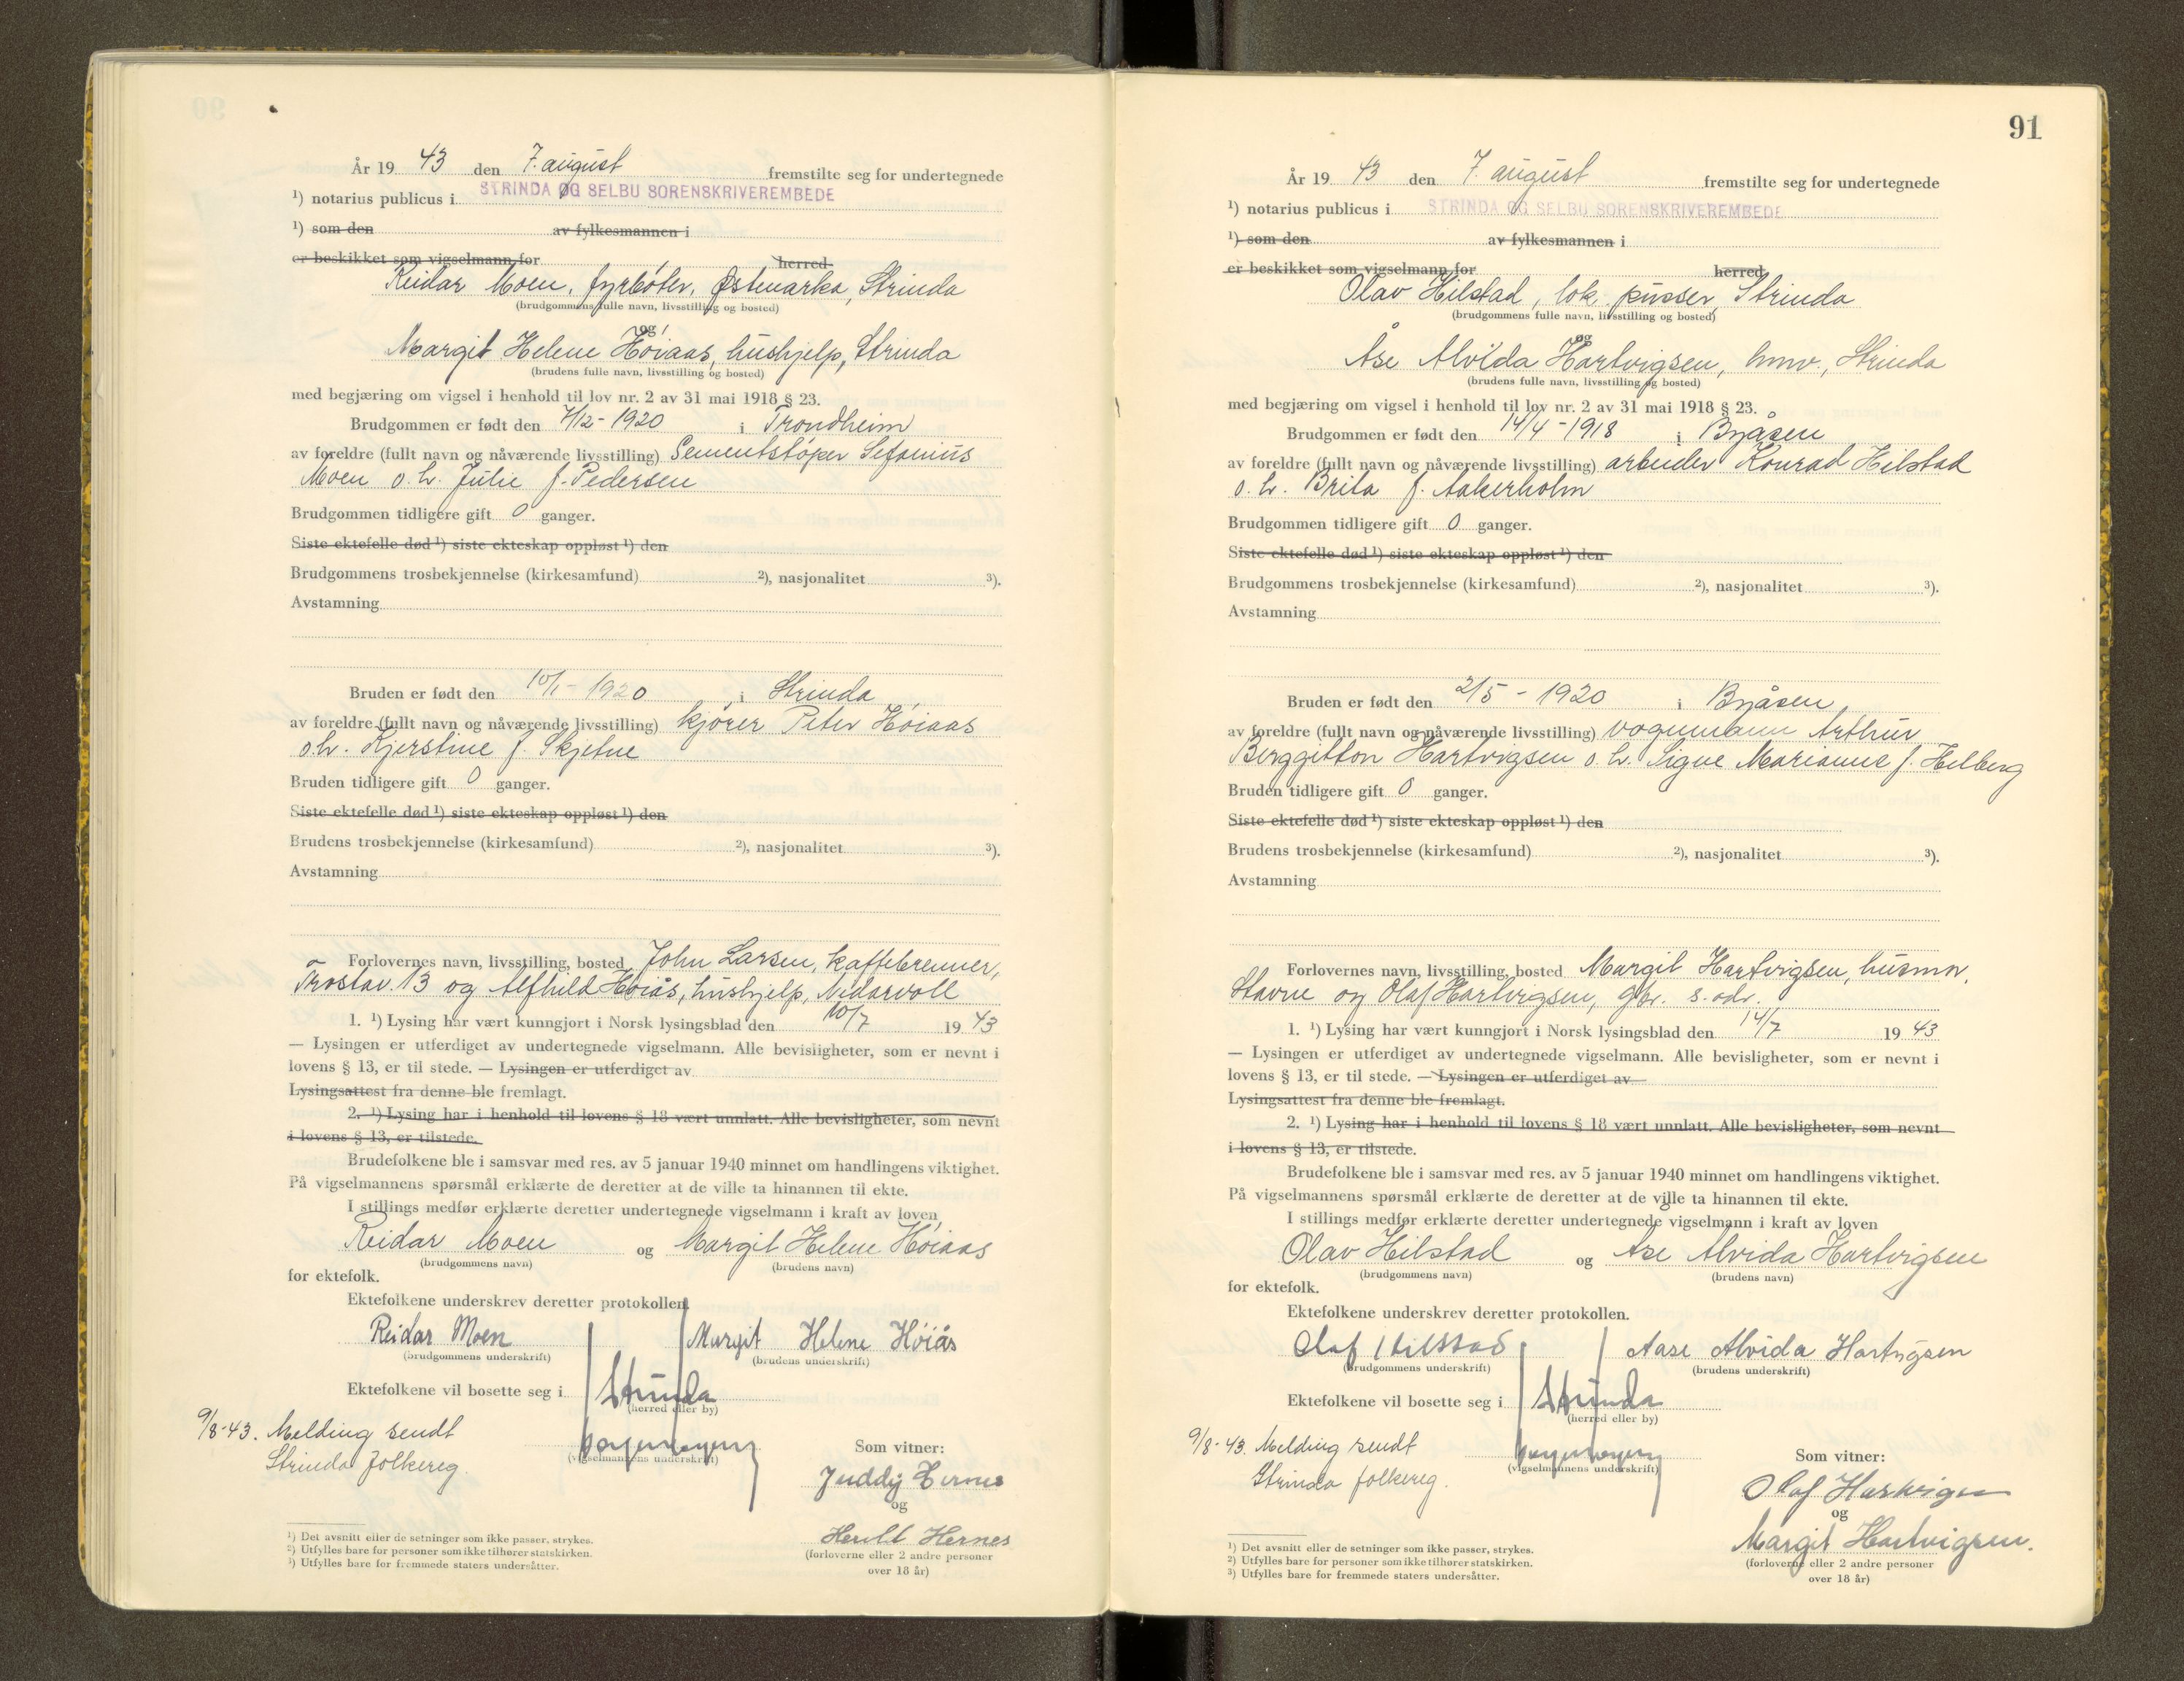 År 19 43 den 7. august fremstilte seg for undertegnede
¹) notarius publicus i STRINDA OG SELBU SORENSKRIVEREMBEDE
¹) som den av fylkesmannen i
er beskikket som vigselmann for herred
Reidar Moen, fyrbøter, Østmarka, Strinda
(brudgommens fulle navn, livsstilling og bosted)
og
Margit Helene Høiaas, hushjelp, Strinda
(brudens fulle navn, livsstilling og bosted)
med begjæring om vigsel i henhold til lov nr. 2 av 31 mai 1918 § 23.
Brudgommen er født den 7/12-1920 i Trondheim
av foreldre (fullt navn og nåværende livsstilling) Sementstøper Sefanius
Moen o.h. Julie f. Pedersen
Brudgommen tidligere gift 0 ganger.
Siste ektefelle død ¹) siste ekteskap oppløst ¹) den
Brudgommens trosbekjennelse (kirkesamfund) ²), nasjonalitet ³).
Avstamning
Bruden er født den 10/1-1920 i Strinda
av foreldre (fullt navn og nåværende livsstilling) kjører Peter Høiaas
o.h. Kjerstine f. Skjetne
Bruden tidligere gift 0 ganger.
Siste ektefelle død ¹) siste ekteskap oppløst ¹) den
Brudens trosbekjennelse (kirkesamfund) ²), nasjonalitet ³).
Avstamning
Forlovernes navn, livsstilling, bosted John Larsen, kaffebrenner,
Trostav. 13 og Alfhild Høiås, hushjelp, Nidarvoll
1. ¹) Lysing har vært kunngjort i Norsk lysingsblad den 10/7 19 43
— Lysingen er utferdiget av undertegnede vigselmann. Alle bevisligheter, som er nevnt i
lovens § 13, er til stede. — Lysingen er utferdiget av
Lysingsattest fra denne ble fremlagt.
2. ¹) Lysing har i henhold til lovens § 18 vært unnlatt. Alle bevisligheter, som nevnt
i lovens § 13, er tilstede.
Brudefolkene ble i samsvar med res. av 5 januar 1940 minnet om handlingens viktighet.
På vigselmannens spørsmål erklærte de deretter at de ville ta hinannen til ekte.
I stillings medfør erklærte deretter undertegnede vigselmann i kraft av loven
Reidar Moen og Margit Helene Høiaas
(brudgommens navn) (brudens navn)
for ektefolk.
Ektefolkene underskrev deretter protokollen.
Reidar Moen Margit Helene Høiås
(brudgommens underskrift) (brudens underskrift)
Ektefolkene vil bosette seg i Strinda
(herred eller by)
9/8-43. Melding sendt
Strinda folkereg.
(vigselmannens underskrift)
Som vitner:
Juddy Hernes
og
Herolt Hernes
(forloverne eller 2 andre personer
over 18 år)
¹) Det avsnitt eller de setninger som ikke passer, strykes.
²) Utfylles bare for personer som ikke tilhører statskirken.
³) Utfylles bare for fremmede staters undersåtter.
91
År 19 43 den 7. august fremstilte seg for undertegnede
¹) notarius publicus i STRINDA OG SELBU SORENSKRIVEREMBEDE
¹) som den av fylkesmannen i
er beskikket som vigselmann for herred
Olav Hilstad, lok. pusser, Strinda
(brudgommens fulle navn, livsstilling og bosted)
og
Åse Alvida Hartvigsen, hmv., Strinda
(brudens fulle navn, livsstilling og bosted)
med begjæring om vigsel i henhold til lov nr. 2 av 31 mai 1918 § 23.
Brudgommen er født den 14/4-1918 i Byåsen
av foreldre (fullt navn og nåværende livsstilling) arbeider Konrad Hilstad
o.h. Brita f. Aakerholm
Brudgommen tidligere gift 0 ganger.
Siste ektefelle død ¹) siste ekteskap oppløst ¹) den
Brudgommens trosbekjennelse (kirkesamfund) ²), nasjonalitet ³).
Avstamning
Bruden er født den 2/5-1920 i Byåsen,
av foreldre (fullt navn og nåværende livsstilling) vognmann Arthur
Berggitton Hartvigsen o.h. Signe Marianne f. Helberg
Bruden tidligere gift 0 ganger.
Siste ektefelle død ¹) siste ekteskap oppløst ¹) den
Brudens trosbekjennelse (kirkesamfund) ²), nasjonalitet ³).
Avstamning
Forlovernes navn, livsstilling, bosted Margit Hartvigsen, husmor,
Stavne og Olaf Hartvigsen, gbr. s. adr.
1. ¹) Lysing har vært kunngjort i Norsk lysingsblad den 14/7 19 43
— Lysingen er utferdiget av undertegnede vigselmann. Alle bevisligheter, som er nevnt i
lovens § 13, er til stede. — Lysingen er utferdiget av
Lysingsattest fra denne ble fremlagt.
2. ¹) Lysing har i henhold til lovens § 18 vært unnlatt. Alle bevisligheter, som nevnt
i lovens § 13, er tilstede.
Brudefolkene ble i samsvar med res. av 5 januar 1940 minnet om handlingens viktighet.
På vigselmannens spørsmål erklærte de deretter at de ville ta hinannen til ekte.
I stillings medfør erklærte deretter undertegnede vigselmann i kraft av loven
Olav Hilstad og Åse Alvida Hartvigsen
(brudgommens navn) (brudens navn)
for ektefolk.
Ektefolkene underskrev deretter protokollen.
Olaf Hilstad Aase Alvida Hartvigsen
(brudgommens underskrift) (brudens underskrift)
Ektefolkene vil bosette seg i Strinda
(herred eller by)
9/8-43. Melding sendt
Strinda folkereg.
(vigselmannens underskrift)
Som vitner:
Olaf Hartvigsen
og
Margit Hartvigsen.
(forloverne eller 2 andre personer
over 18 år)
¹) Det avsnitt eller de setninger som ikke passer, strykes.
²) Utfylles bare for personer som ikke tilhører statskirken.
³) Utfylles bare for fremmede staters undersåtter.